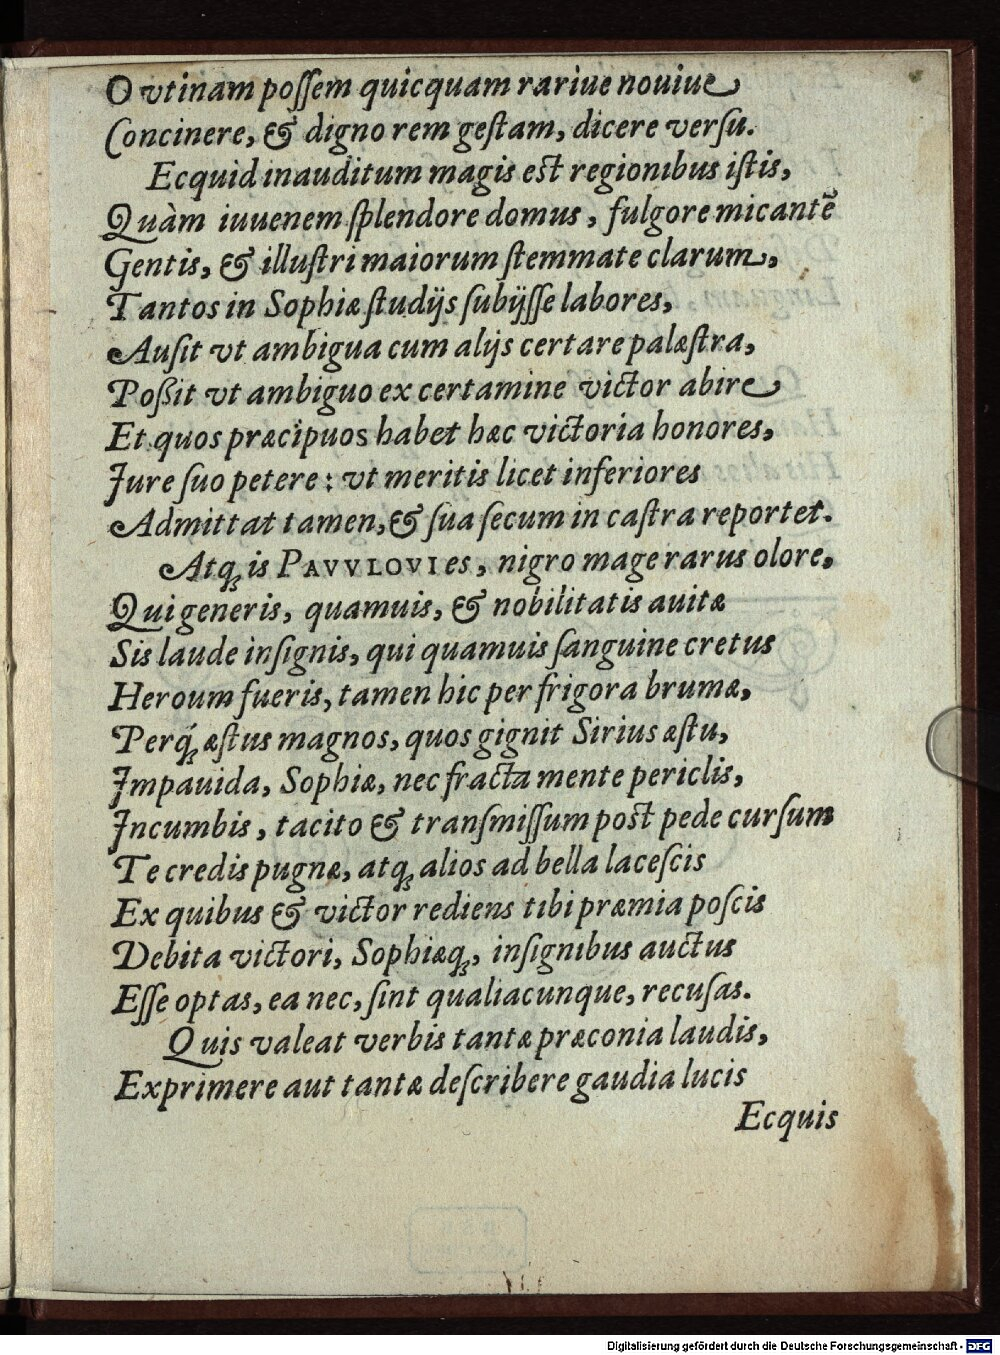 O vtinam poſſem quicquam rariue nouiue
Concinere, & digno rem geſtam, dicere verſu.
Ecquid inauditum magis est regionibus iſtis,
Quàm iuuenem ſplendore domus, fulgore micantẽ
Gentis, & illuſtri maiorum ſtemmate clarum,
Tantos in Sophiæ ſtudijs ſubijſſe labores,
Auſit vt ambigua cum alijs certare palæſtra,
Poßit vt ambiguo ex certamine victor abire
Et quos præcipuos habet hæc victoria honores,
Iure ſuo petere: vt meritis licet inferiores
Admittat tamen, & ſua ſecum in caſtra reportet.
Atq; is PAVVLOVIes, nigro mage rarus olore,
Qui generis, quamuis, & nobilitatis auitæ
Sis laude inſignis, qui quamuis ſanguine cretus
Heroum fueris, tamen hic per frigora brumæ,
Perq́; æſtus magnos, quos gignit Sirius æſtu,
Impauida, Sophiæ, nec fracta mente periclis,
Incumbis, tacito & tranſmiſſum post pede curſum
Te credis pugnæ, atq; alios ad bella laceſcis
Ex quibus & victor rediens tibi præmia poſcis
Debita victori, Sophiæq;, inſignibus auctus
Eſſe optas, ea nec, ſint qualiacunque, recuſas.
Quis valeat verbis tantæ præconia laudis,
Exprimere aut tantæ deſcribere gaudia lucis
Ecquis
Digitalisierung gefördert durch die Deutsche Forschungsgemeinschaft - DFG